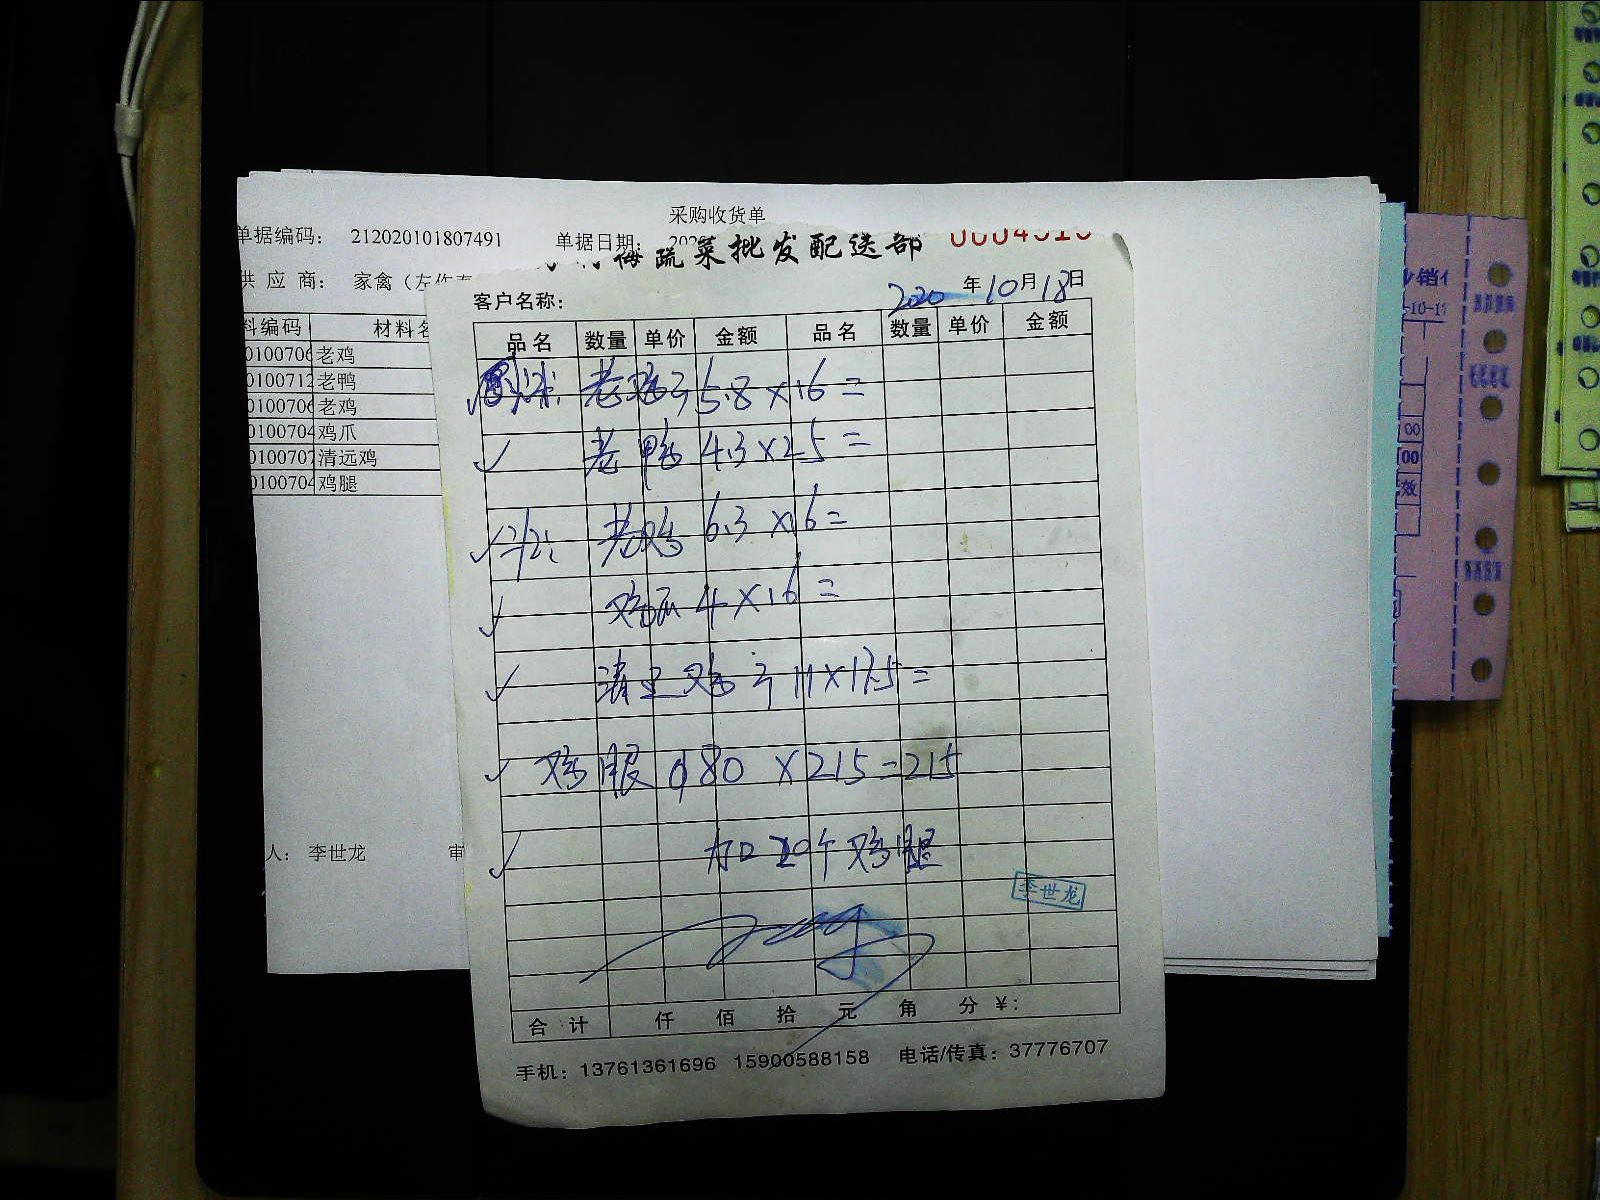 采购收货单
单据编码： 212020101807491 单据日期：
供 应 商： 家禽（左
料编码 材料名
0100706 老鸡
0100712 老鸭
0100706 老鸡
0100704 鸡爪
0100707 清远鸡
0100704 鸡腿
人： 李世龙 审
梅蔬菜批发配送部
客户名称：
2020 年 10 月 18 日
品名 数量 单价 金额 品名 数量 单价 金额
老鸡 5.8×16=
老鸭 4.3×25=
老鸡 6.3×16=
鸡爪 4×16=
清远鸡 11×17.5=
鸡腿 180×215=215
加20个鸡腿
李世龙
合 计 仟 佰 拾 元 角 分 ¥：
手机：13761361696 15900588158 电话/传真：37776707
少销
-10-17
00
00
效